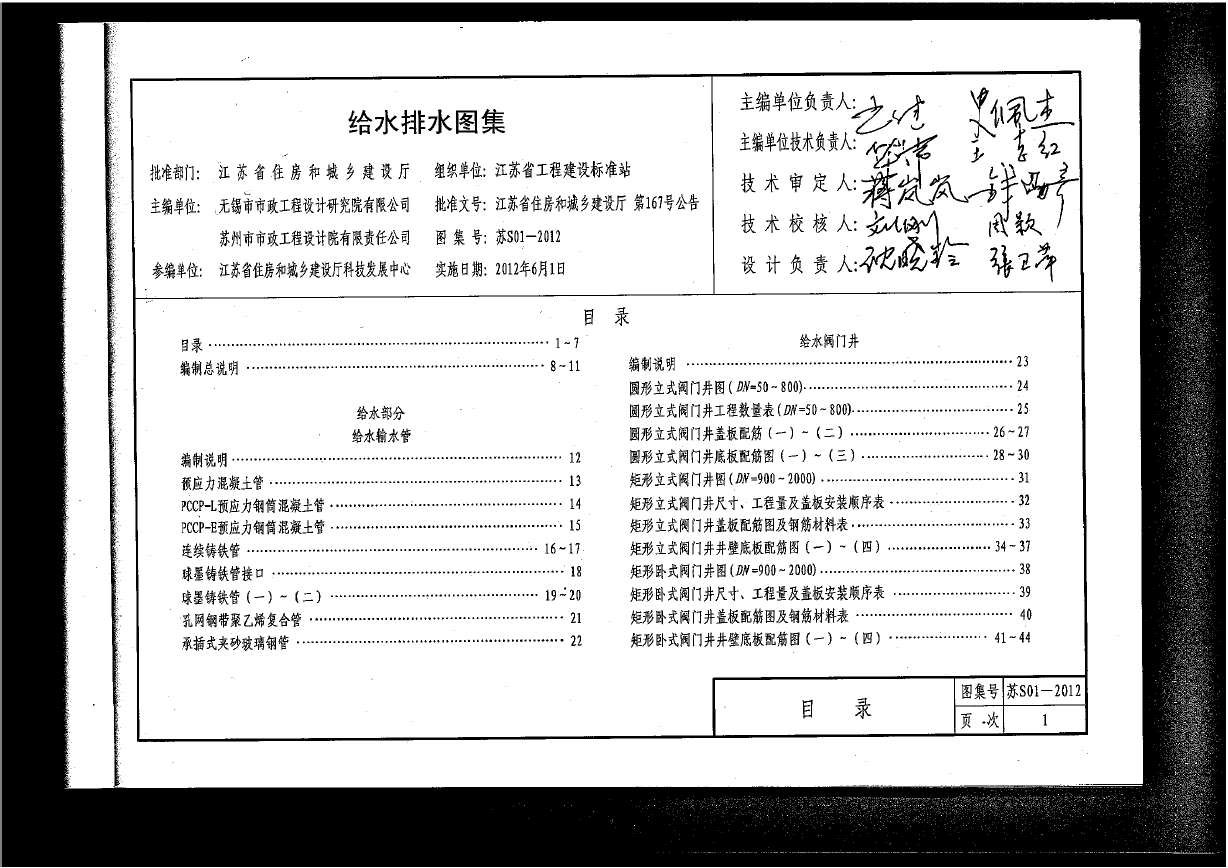 给水排水图集
批准部门: 江苏省住房和城乡建设厅 组织单位: 江苏省工程建设标准站
主编单位: 无锡市市政工程设计研究院有限公司 批准文号: 江苏省住房和城乡建设厅 第167号公告
苏州市市政工程设计院有限责任公司 图集号: 苏S01—2012
参编单位: 江苏省住房和城乡建设厅科技发展中心 实施日期: 2012年6月1日
主编单位负责人:
主编单位技术负责人:
技术审定人: 蒋岚岚
技术校核人: 周颖
设计负责人: 沈晓铃 張卫萍
目 录
目录 1~7
编制总说明 8~11
给水部分
给水输水管
编制说明 12
预应力混凝土管 13
PCCP-L预应力钢筒混凝土管 14
PCCP-E预应力钢筒混凝土管 15
连续铸铁管 16~17
球墨铸铁管接口 18
球墨铸铁管(一)~(二) 19~20
孔网钢带聚乙烯复合管 21
承插式夹砂玻璃钢管 22
给水阀门井
编制说明 23
圆形立式阀门井图(DN=50~800) 24
圆形立式阀门井工程数量表(DN=50~800) 25
圆形立式阀门井盖板配筋(一)~(二) 26~27
圆形立式阀门井底板配筋图(一)~(三) 28~30
矩形立式阀门井图(DN=900~2000) 31
矩形立式阀门井尺寸、工程量及盖板安装顺序表 32
矩形立式阀门井盖板配筋图及钢筋材料表 33
矩形立式阀门井井壁底板配筋图(一)~(四) 34~37
矩形卧式阀门井图(DN=900~2000) 38
矩形卧式阀门井尺寸、工程量及盖板安装顺序表 39
矩形卧式阀门井盖板配筋图及钢筋材料表 40
矩形卧式阀门井井壁底板配筋图(一)~(四) 41~44
目 录
图集号 苏S01—2012
页次 1